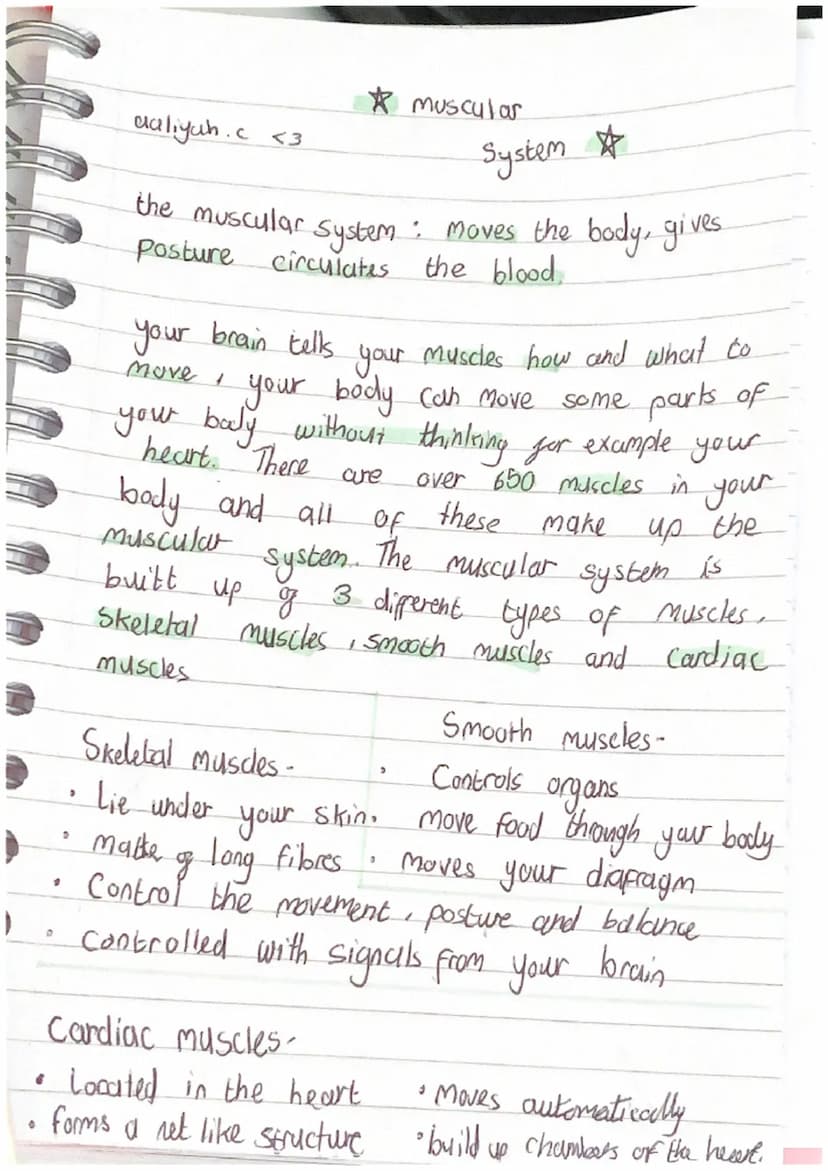 ☆ muscular
aaliyah.c <3
System ☆
the muscular system : moves the body, gives
Posture circulates the blood.
your brain tells your muscles how and what to
move, your body can move some parts of
your body without thinking for example your
heart. There are over 650 muscles in your
body and all of these make up the
muscular system. The muscular system is
built up of 3 different types of muscles,
Skeletal muscles, smooth muscles and cardiac
muscles
Skeletal muscles -
• Lie under your skin.
• made of long fibres
• Control the movement, posture and balance
• controlled with signals from your brain
Smooth muscles -
• Controls organs
move food through your body
• moves your diafragm
Cardiac muscles -
• Located in the heart
• forms a net like structure
• Moves automatically
• build up chambers of the heart.